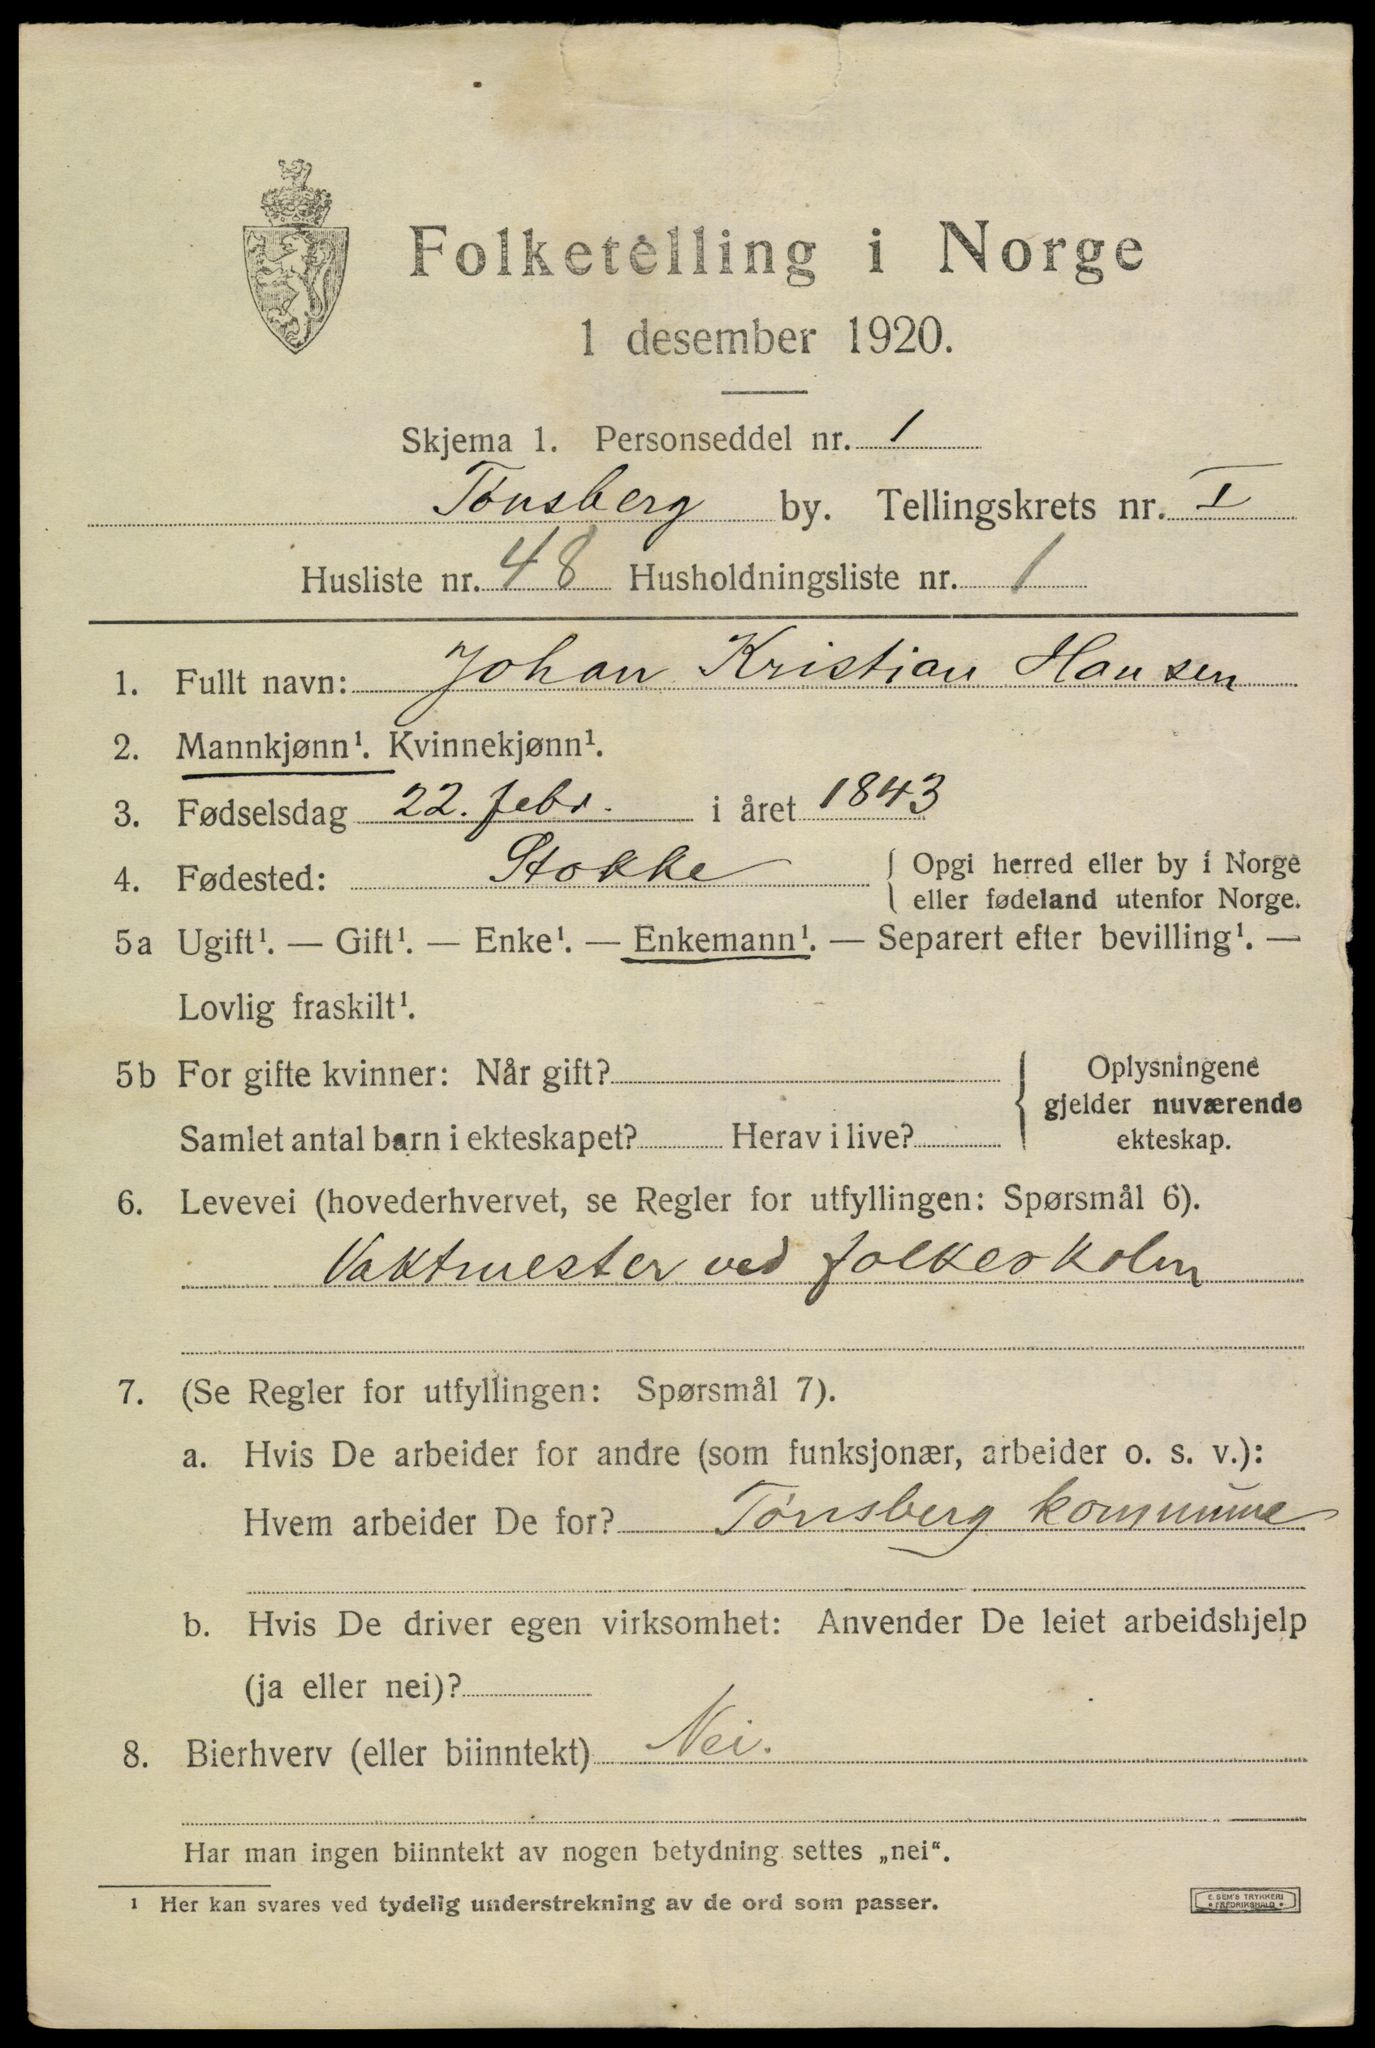 Folketelling i Norge
1 desember 1920.
Skjema 1. Personseddel nr. 1
Tønsberg by. Tellingskrets nr. I
Husliste nr. 48 Husholdningsliste nr. 1
1. Fullt navn: Johan Kristian Hansen
2. Mannkjønn¹. Kvinnekjønn¹.
3. Fødselsdag 22. febr. i året 1843
4. Fødested: Stokke { Opgi herred eller by i Norge
eller fødeland utenfor Norge.
5a Ugift¹. — Gift¹. — Enke¹. — Enkemann¹. — Separert efter bevilling¹. —
Lovlig fraskilt¹.
5b For gifte kvinner: Når gift? { Oplysningene
gjelder nuværende
Samlet antal barn i ekteskapet? Herav i live? ekteskap.
6. Levevei (hovederhvervet, se Regler for utfyllingen: Spørsmål 6).
Vaktmester ved folkeskolen
7. (Se Regler for utfyllingen: Spørsmål 7).
a. Hvis De arbeider for andre (som funksjonær, arbeider o. s. v.):
Hvem arbeider De for? Tønsberg kommune
b. Hvis De driver egen virksomhet: Anvender De leiet arbeidshjelp
(ja eller nei)?
8. Bierhverv (eller biinntekt) Nei.
Har man ingen biinntekt av nogen betydning settes „nei“.
1 Her kan svares ved tydelig understrekning av de ord som passer.
E. SEM'S TRYKKERI
FREDRIKSHALD